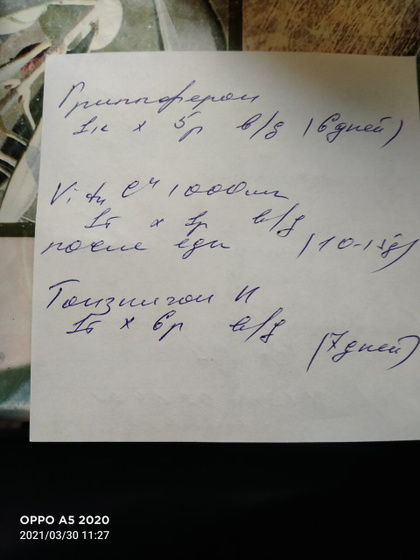 Гриппферон
1к х 5р в/д (6 дней)
Vit "C" 1000мг
1т х 1р в/д
после еды (10-15д)
Тонзилгон Н
1т х 6р в/д
(7 дней)
OPPO A5 2020
2021/03/30 11:27